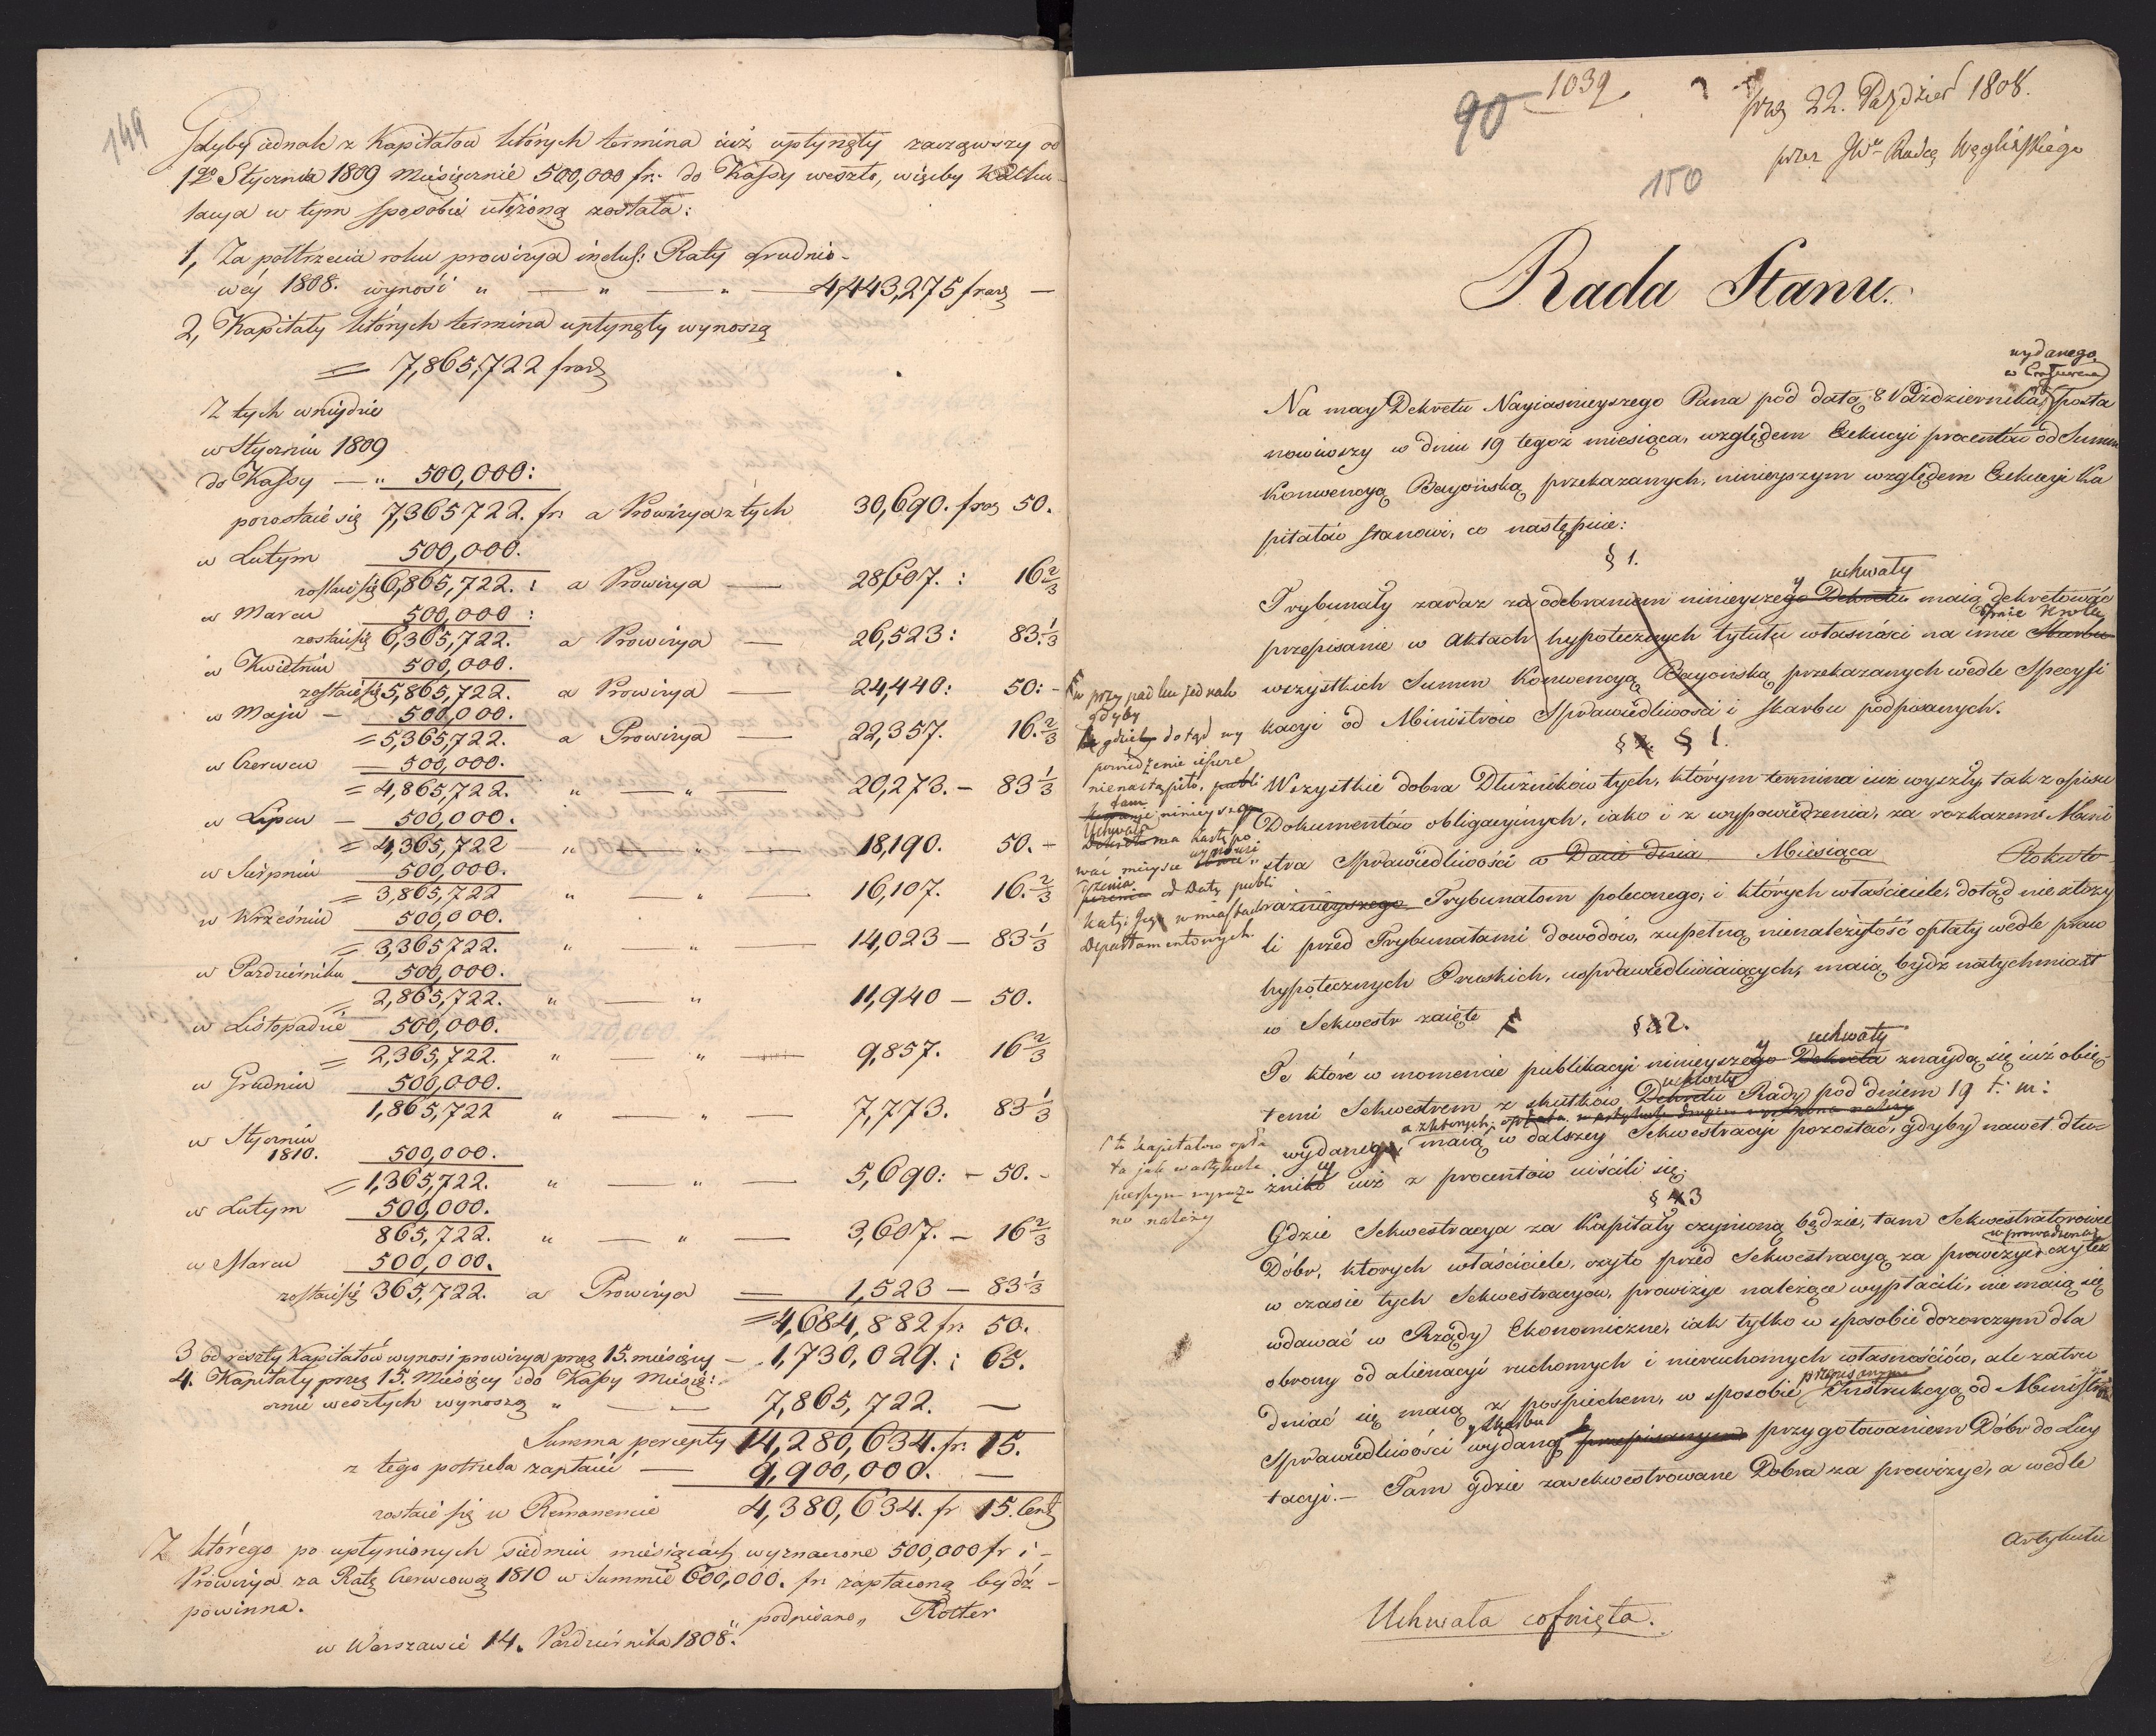 149
Gdyby iednak z Kapitałow których termina iuż upłynęły zacząwszy od
1go Stycznia 1809 Miesięcznie 500,000 fr: do Kassy weszło, więcby Kalku-
lacya w tym sposobie ułożoną została:
1, Za półtrzecia roku prowizya inclus: Raty Grudnio-
wéy 1808. wynosi " — " — " — 4,443,275 franz —
2, Kapitały których termina upłynęły wynoszą
= 7,865,722 franz
Z tych wniydzie
w Styczniu 1809
do Kassy — " 500,000:
pozostaie się 7,365722. fr: a Prowizya z tych 30,690. franz 50.
w Lutym 500,000.
zostaie się 6,865,722. : a Prowizya — 28,607. : 16 2/3
w Marcu 500,000 :
zostaie się 6,365,722. a Prowizya — 26,523: 83 1/3
w Kwietniu 500,000.
zostaie się 5,865,722. a Prowizya — 24,440: 50: -
w Maju — 500,000.
= 5,365,722. a Prowizya — 22,357. 16. 2/3
w Czerwcu — 500,000.
= 4,865,722. " — " — 20,273. - 83 1/3
w Lipcu — 500,000.
= 4,365,722 " — " — 18,190. 50. -
w Sierpniu 500,000.
= 3,865,722 " — " — 16,107. 16. 2/3
w Wrześniu 500,000.
= 3,365722. " — " — 14,023 — 83 1/3
w Pazdzierniku 500,000.
= 2,865,722. " — " 11,940 — 50.
w Listopadzie 500,000.
= 2,365,722. " — " — 9,857. 16 2/3
w Grudniu 500,000.
1,865,722 " — " — 7,773. 83 1/3
w Styczniu
1810. 500,000.
= 1,365,722. " — " — 5,690: - 50. -
w Lutym 500,000.
865,722. " — " — 3,607. - 16 2/3
w Marcu 500,000.
zostaie się 365,722. a Prowizya — 1,523 — 83 1/3
= 4,684,882 fr: 50.
3 od reszty Kapitałów wynosi prowizya przez 15. miesięcy — 1,730,029. : 65.
4. Kapitały przez 15. Miesięcy do Kassy Miesię:
cznie weszłych wynoszą " — — 7,865,722. —
Summa percepty 14,280,634. fr: 15.
z tego potrzeba zapłacić — 9,900,000. —
zostaie się w Remanencie 4,380,634. fr 15. Cent
Z którego po upłynionych siedmiu miesiącach wyznaczone 500,000 fr i -
Prowizya za Ratę Czerwcową 1810 w Summie 600,000. fr: zapłaconą bydź -
powinna.
podpisano „ Rotter
w Warszawie 14. Pazdziernika 1808.
90 1039
prez 22. Pazdzier 1808.
przez JWo Radcę Węglińskiego
150
Rada Stanu.
wydanego
Na mocy Dekretu Nayiaśnieyszego Pana pod datą 8 Pazdziernika posta
nowiwszy w dniu 19 tegoż miesiąca, względem Exekucyi procentów od Summ
Konwencyą Bayońską przekazanych, ninieyszym względem Exekucyi Ka
pitałów stanowi, co następuie:
§ 1.
uchwały
Trybunały zaraz za odebraniem ninieyszego Dekretu maią dekretować
Króla
przepisanie w Aktach hypotecznych tytułu własności na imie Skarbu
wszystkich Summ Konwencyą Bayońską przekazanych wedle Specyfi
kacyi od Ministrów Sprawiedliwości i Skarbu podpisanych.
w przypadku jednak
gdyby
gdzieby dotąd wy
powiedzenie ieszcze
nienastąpiło, publi
tam ninieyszego
Uchwała
Dekretu ma zastępo
wać mieysce wypowie
dzenia
od Daty publi
kacyi Jey w miastach
Departamentowych.
§ 2. § 1.
Wszystkie dobra Dłużników tych, którym termina iuż wyszły, tak z opisu
Dokumentów obligacyinych, iako i z wypowiedzenia, za rozkazem Mini
stra Sprawiedliwości w Dacie dnia Miesiąca Roku te-
raźnieyszego Trybunałom poleconego, i których właściciele, dotąd nie złoży
li przed Trybunałami dowodów, zupełną nienależytość opłaty wedle praw
hypotecznych Pruskich, usprawiedliwiaiących, maią bydź natychmiast
w Sekwestr zaięte
§ 3 2.
uchwały
Te które w momencie publikacyi ninieyszego Dekretu znaydą się iuż obię-
uchwały
temi Sekwestrem z skutków Dekretu Rady pod dniem 19 t: m:
a z których
wydanego, maią w dalszey Sekwestracyi pozostać, gdyby nawet dłu-
żnicy iuż z procentów uiścili się.
to kapitałow opła
ta jak w artykule
pierszym wyrażo
no należy
§ 4 3
Gdzie Sekwestracya za Kapitały czynioną będzie, tam Sekwestratorowie
wprowadzoną
Dóbr, których właściciele, czyto przed Sekwestracyą za prowizye czyteż
w czasie tych Sekwestracyow, prowizye należące wypłacili, nie maią się
wdawać w Rządy Ekonomiczne, iak tylko w sposobie dozorczym dla
obrony od alienacyi ruchomych i nieruchomych własnościów, ale zatru
przepisanym
dniać się maią z pospiechem, w sposobie Instrukcyą od Ministrów
y Skarbu
Sprawiedliwości wydaną przepisanym przygotowaniem Dóbr do Licy
tacyi. — Tam gdzie zasekwestrowane Dobra za prowizye, a wedle
Artykułu
Uchwała cofnięta.